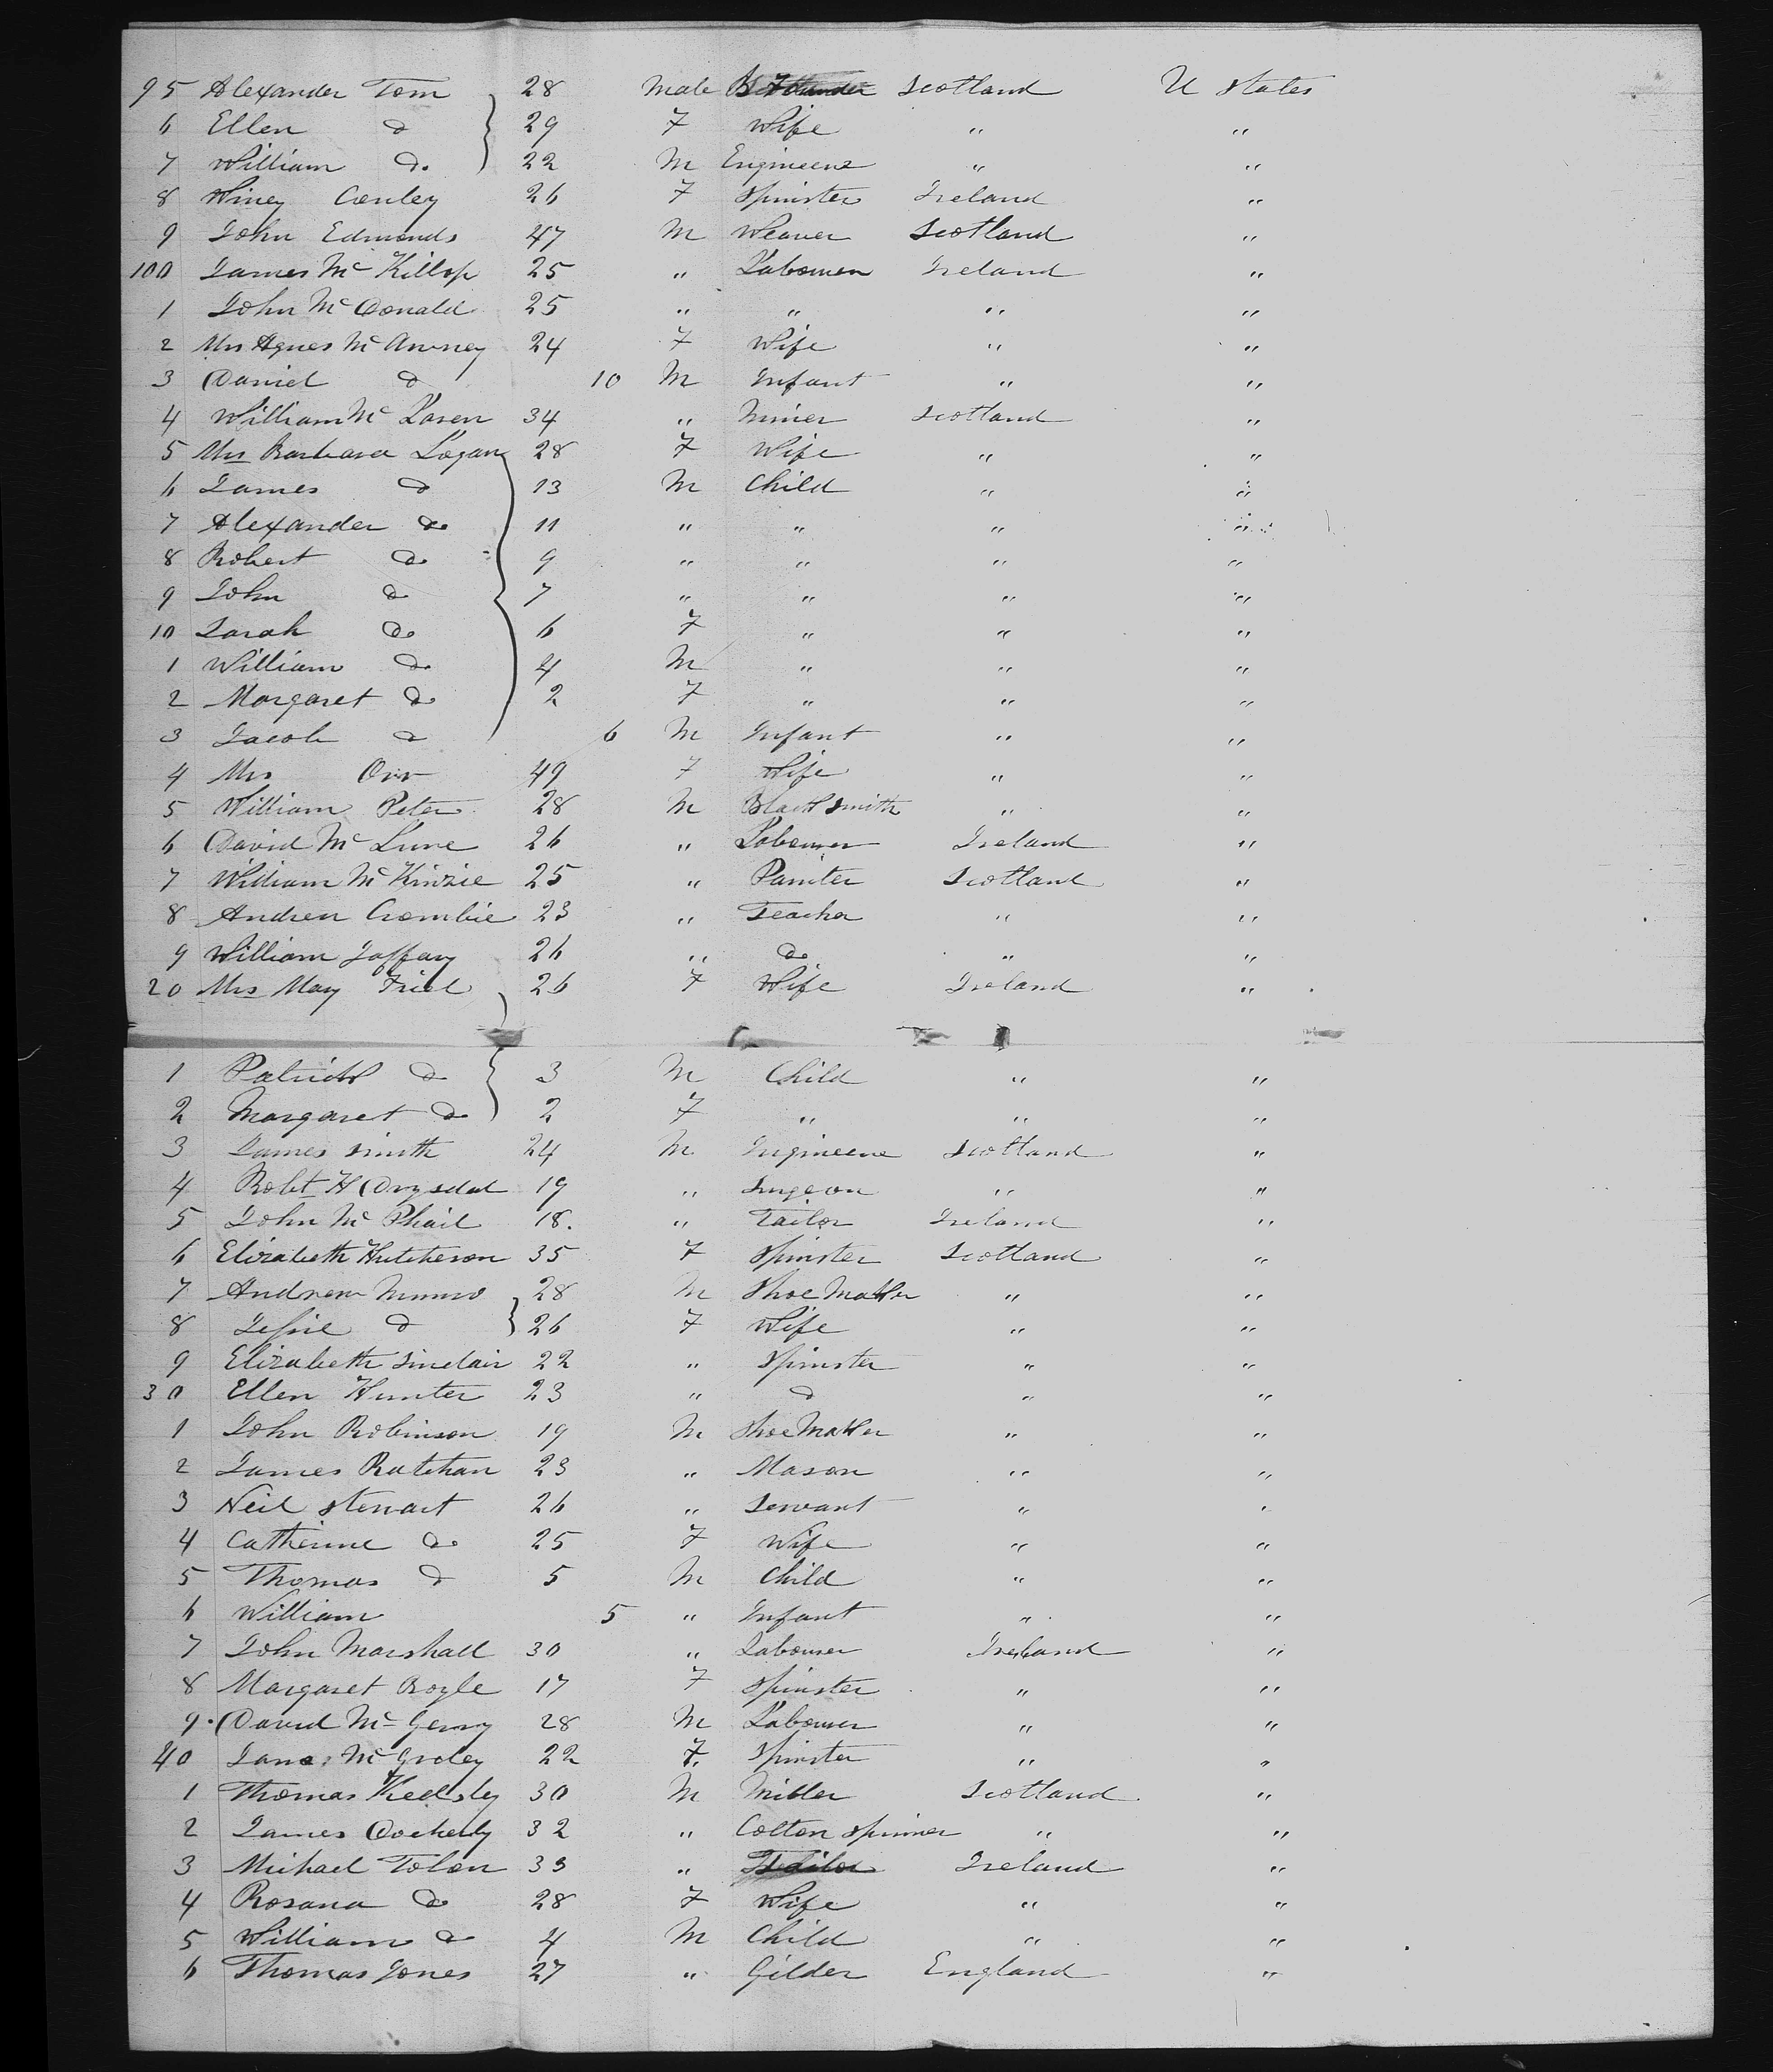 95 Alexander Tom 28 Male Scotland U States
6 Ellen do 29 F Wife " "
7 William do. 22 M Engineer " "
8 Winey Conley 26 F Spinster Ireland "
9 John Edmonds 47 M Weaver Scotland "
100 James McKillop 25 " Labourer Ireland "
1 John McDonald 25 " " " "
2 Mrs Agnes McAwney 24 F Wife " "
3 Daniel do 10 M Infant " "
4 William McLaren 34 " Miner Scotland "
5 Mrs Barbara Logan 28 F Wife " "
6 James do 13 M Child " "
7 Alexander do 11 " " " "
8 Robert do 9 " " " "
9 John do 7 " " " "
10 Sarah do 6 F " " "
1 William do 4 M " " "
2 Margaret do 2 F " " "
3 Jacob do 6 M Infant " "
4 Mrs Orr 49 F Wife " "
5 William Peter 28 M Blacksmith " "
6 David McLune 26 " Labourer Ireland "
7 William McKinzie 25 " Painter Scotland "
8 Andrew Crombie 23 " Teacher " "
9 William Jaffary 26 " do " "
20 Mrs May Friel 26 F Wife Ireland "
1 Patrick do 3 M Child " "
2 Margaret do 2 F " " "
3 James Smith 24 M Engineer Scotland "
4 Robt H Drysdal 19 " Surgeon " "
5 John McPhail 18. " Tailor Ireland "
6 Elizabeth Hutcheson 35 F Spinster Scotland "
7 Andrew Munro 28 M Shoe Maker " "
8 Jessie do 26 F Wife " "
9 Elizabeth Sinclair 22 " Spinster " "
30 Ellen Hunter 23 " do " "
1 John Robinson 19 M Shoe Maker " "
2 James Rathhan 23 " Mason " "
3 Neil Stewart 26 " Servant " "
4 Catherine do 25 F Wife " "
5 Thomas do 5 M Child " "
6 William 5 " Infant " "
7 John Marshall 30 " Labourer Ireland "
8 Margaret Boyle 17 F Spinster " "
9 David McGerry 28 M Labourer " "
40 Jane McGroley 22 F. Spinster " "
1 Thomas 30 M Miller Scotland "
2 James Docherty 32 " Cotton Spinner " "
3 Michael Tolen 33 " Ireland "
4 Rosana do 28 F Wife " "
5 William do 4 M Child " "
6 Thomas Jones 27 " Gilder England "